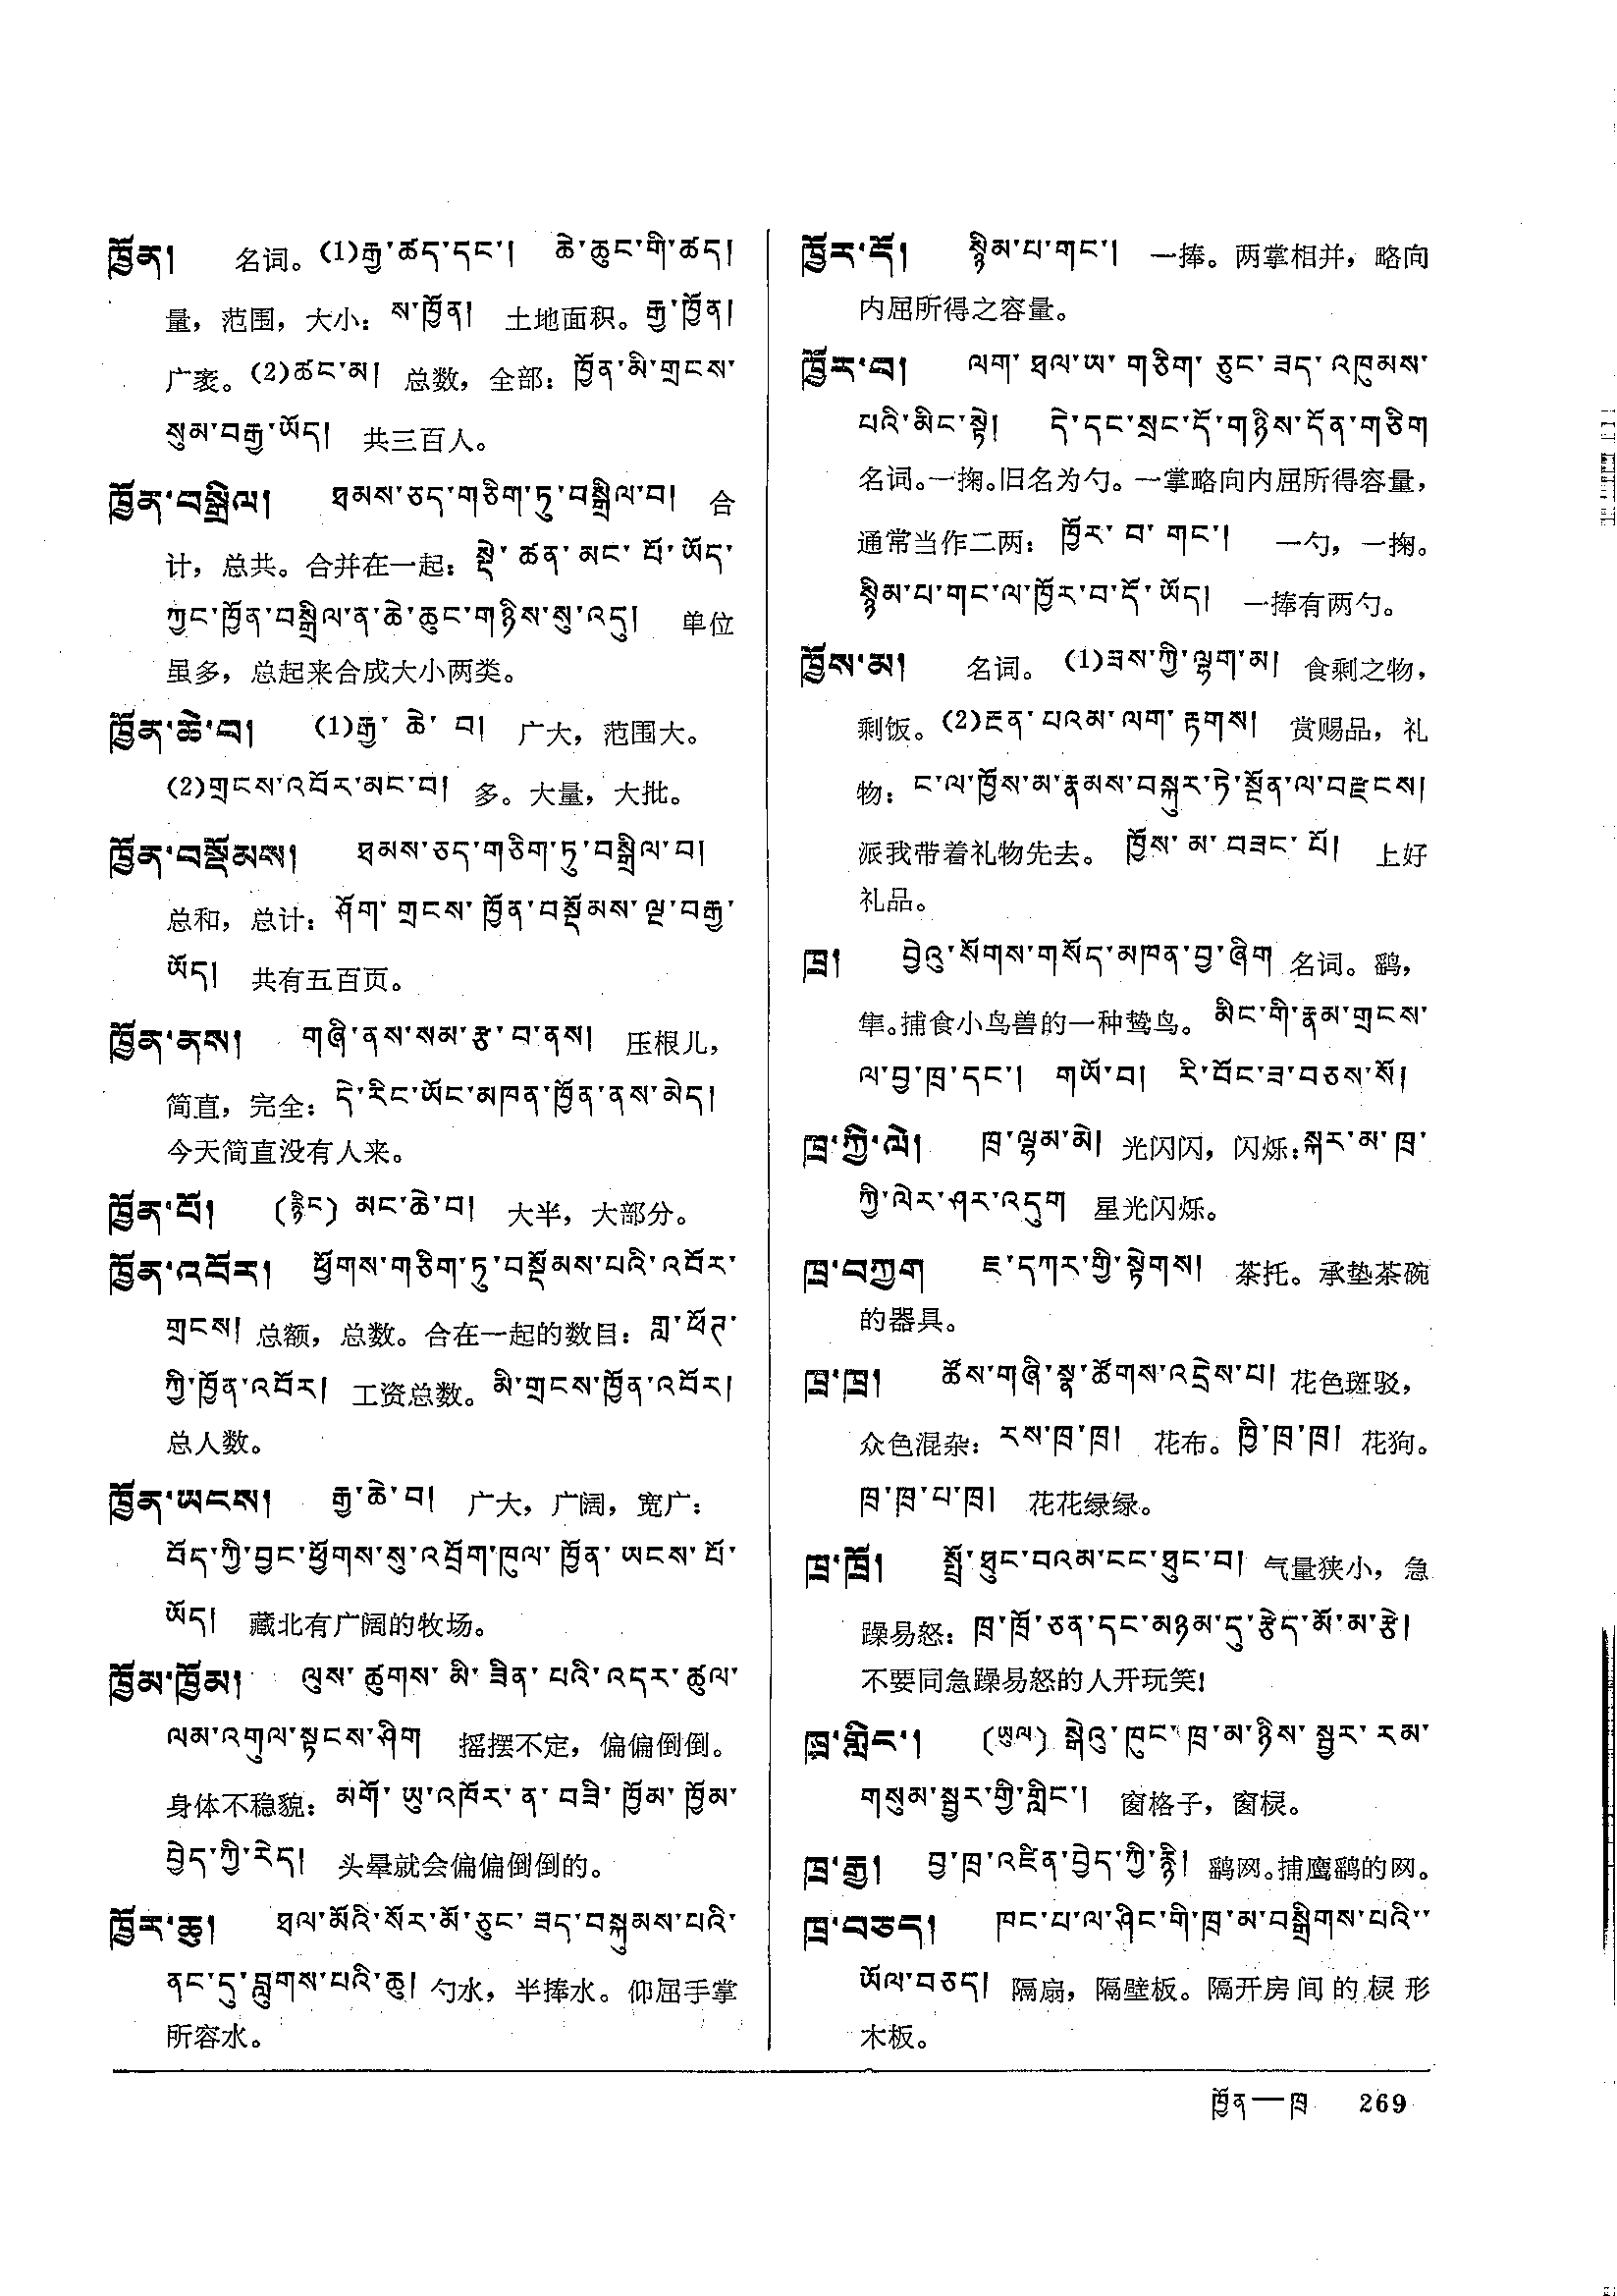 ཁྱོན། 名词。(1)རྒྱ་ཚད་དང་། ཆེ་ཆུང་གི་ཚད།
量，范围，大小：ས་ཁྱོན། 土地面积。རྒྱ་ཁྱོན།
广袤。(2)ཚང་མ། 总数，全部：ཁྱོན་མི་གྲངས་
སུམ་བརྒྱ་ཡོད། 共三百人。
ཁྱོན་བསྒྲིལ། ཐམས་ཅད་གཅིག་ཏུ་བསྒྲིལ་བ། 合
计，总共。合并在一起：སྡེ་ཚན་མང་པོ་ཡོད་
ཀྱང་ཁྱོན་བསྒྲིལ་ན་ཆེ་ཆུང་གཉིས་སུ་འདུ། 单位
虽多，总起来合成大小两类。
ཁྱོན་ཆེ་བ། (1)རྒྱ་ཆེ་བ། 广大，范围大。
(2)གྲངས་འབོར་མང་བ། 多。大量，大批。
ཁྱོན་བསྡོམས། ཐམས་ཅད་གཅིག་ཏུ་བསྒྲིལ་བ།
总和，总计：ཤོག་གྲངས་ཁྱོན་བསྡོམས་ལྔ་བརྒྱ་
ཡོད། 共有五百页。
ཁྱོན་ནས། གཞི་ནས་སམ་རྩ་བ་ནས། 压根儿，
简直，完全：དེ་རིང་ཡོང་མཁན་ཁྱོན་ནས་མེད།
今天简直没有人来。
ཁྱོན་པོ། (རྙིང) མང་ཆེ་བ། 大半，大部分。
ཁྱོན་འབོར། ཕྱོགས་གཅིག་ཏུ་བསྡོམས་པའི་འབོར་
གྲངས། 总额，总数。合在一起的数目：གླ་ཕོགས་
ཀྱི་ཁྱོན་འབོར། 工资总数。མི་གྲངས་ཁྱོན་འབོར།
总人数。
ཁྱོན་ཡངས། རྒྱ་ཆེ་བ། 广大，广阔，宽广：
བོད་ཀྱི་བྱང་ཕྱོགས་སུ་འབྲོག་ཁུལ་ཁྱོན་ཡངས་པོ་
ཡོད། 藏北有广阔的牧场。
ཁྱོམ་ཁྱོམ། ལུས་ཚུགས་མི་ཟིན་པའི་འདར་ཚུལ་
ལམ་འགུལ་སྟངས་ཤིག 摇摆不定，偏偏倒倒。
身体不稳貌：མགོ་ཡུ་འཁོར་ན་བཟི་ཁྱོམ་ཁྱོམ་
བྱེད་ཀྱི་རེད། 头晕就会偏偏倒倒的。
ཁྱོར་ཆུ། ཐལ་མོའི་སོར་མོ་ཅུང་ཟད་བསྐུམས་པའི་
ནང་དུ་བླུགས་པའི་ཆུ། 勺水，半捧水。仰屈手掌
所容水。
ཁྱོར་དོ། སྙིམ་པ་གང་། 一捧。两掌相并，略向
内屈所得之容量。
ཁྱོར་བ། ལག་ཐལ་ཡ་གཅིག་ཅུང་ཟད་འཁུམས་
པའི་མིང་སྟེ། དེ་དང་སྲང་དོ་གཉིས་དོན་གཅིག
名词。一掬。旧名为勺。一掌略向内屈所得容量，
通常当作二两：ཁྱོར་བ་གང་། 一勺，一掬。
སྙིམ་པ་གང་ལ་ཁྱོར་བ་དོ་ཡོད། 一捧有两勺。
ཁྱོས་མ། 名词。(1)ཟས་ཀྱི་ལྷག་མ། 食剩之物，
剩饭。(2)རྔན་པའམ་ལག་རྟགས། 赏赐品，礼
物：ང་ལ་ཁྱོས་མ་རྣམས་བསྐུར་ཏེ་སྔོན་ལ་བརྫངས།
派我带着礼物先去。 ཁྱོས་མ་བཟང་པོ། 上好
礼品。
ཁྲ། བྱེའུ་སོགས་གསོད་མཁན་བྱ་ཞིག 名词。鹞，
隼。捕食小鸟兽的一种鸷鸟。མིང་གི་རྣམ་གྲངས་
ལ་བྱ་ཁྲ་དང་། གཡོ་བ། རི་བོང་ཟ་བཅས་སོ།
ཁྲ་ཀྱི་ལེ། ཁྲ་ལྷམ་མེ། 光闪闪，闪烁：སྐར་མ་ཁྲ་
ཀྱི་ལེར་ཤར་འདུག 星光闪烁。
ཁྲ་བཀྱག ཇ་དཀར་གྱི་སྟེགས། 茶托。承垫茶碗
的器具。
ཁྲ་ཁྲ། ཚོས་གཞི་སྣ་ཚོགས་འདྲེས་པ། 花色斑驳，
众色混杂：རས་ཁྲ་ཁྲ། 花布。ཁྱི་ཁྲ་ཁྲ། 花狗。
ཁྲ་ཁྲ་པ་ཁྲ། 花花绿绿。
ཁྲ་ཁྲོ། སྤྲོ་ཐུང་བའམ་ངང་ཐུང་བ། 气量狭小，急
躁易怒：ཁྲ་ཁྲོ་ཅན་དང་མཉམ་དུ་རྩེད་མོ་མ་རྩེ།
不要同急躁易怒的人开玩笑！
ཁྲ་གླིང་། (ཡུལ) སྒེའུ་ཁུང་ཁྲ་མ་ཉིས་སྦྱར་རམ་
གསུམ་སྦྱར་གྱི་གླིང་། 窗格子，窗棂。
ཁྲ་རྒྱ། བྱ་ཁྲ་འཛིན་བྱེད་ཀྱི་རྙི། 鹞网。捕鹰鹞的网。
ཁྲ་བཅད། ཁང་པ་ལ་ཤིང་གི་ཁྲ་མ་བསྒྲིགས་པའི་
ཡོལ་བཅད། 隔扇，隔壁板。隔开房间的棂形
木板。
ཁྱོན—ཁྲ 269